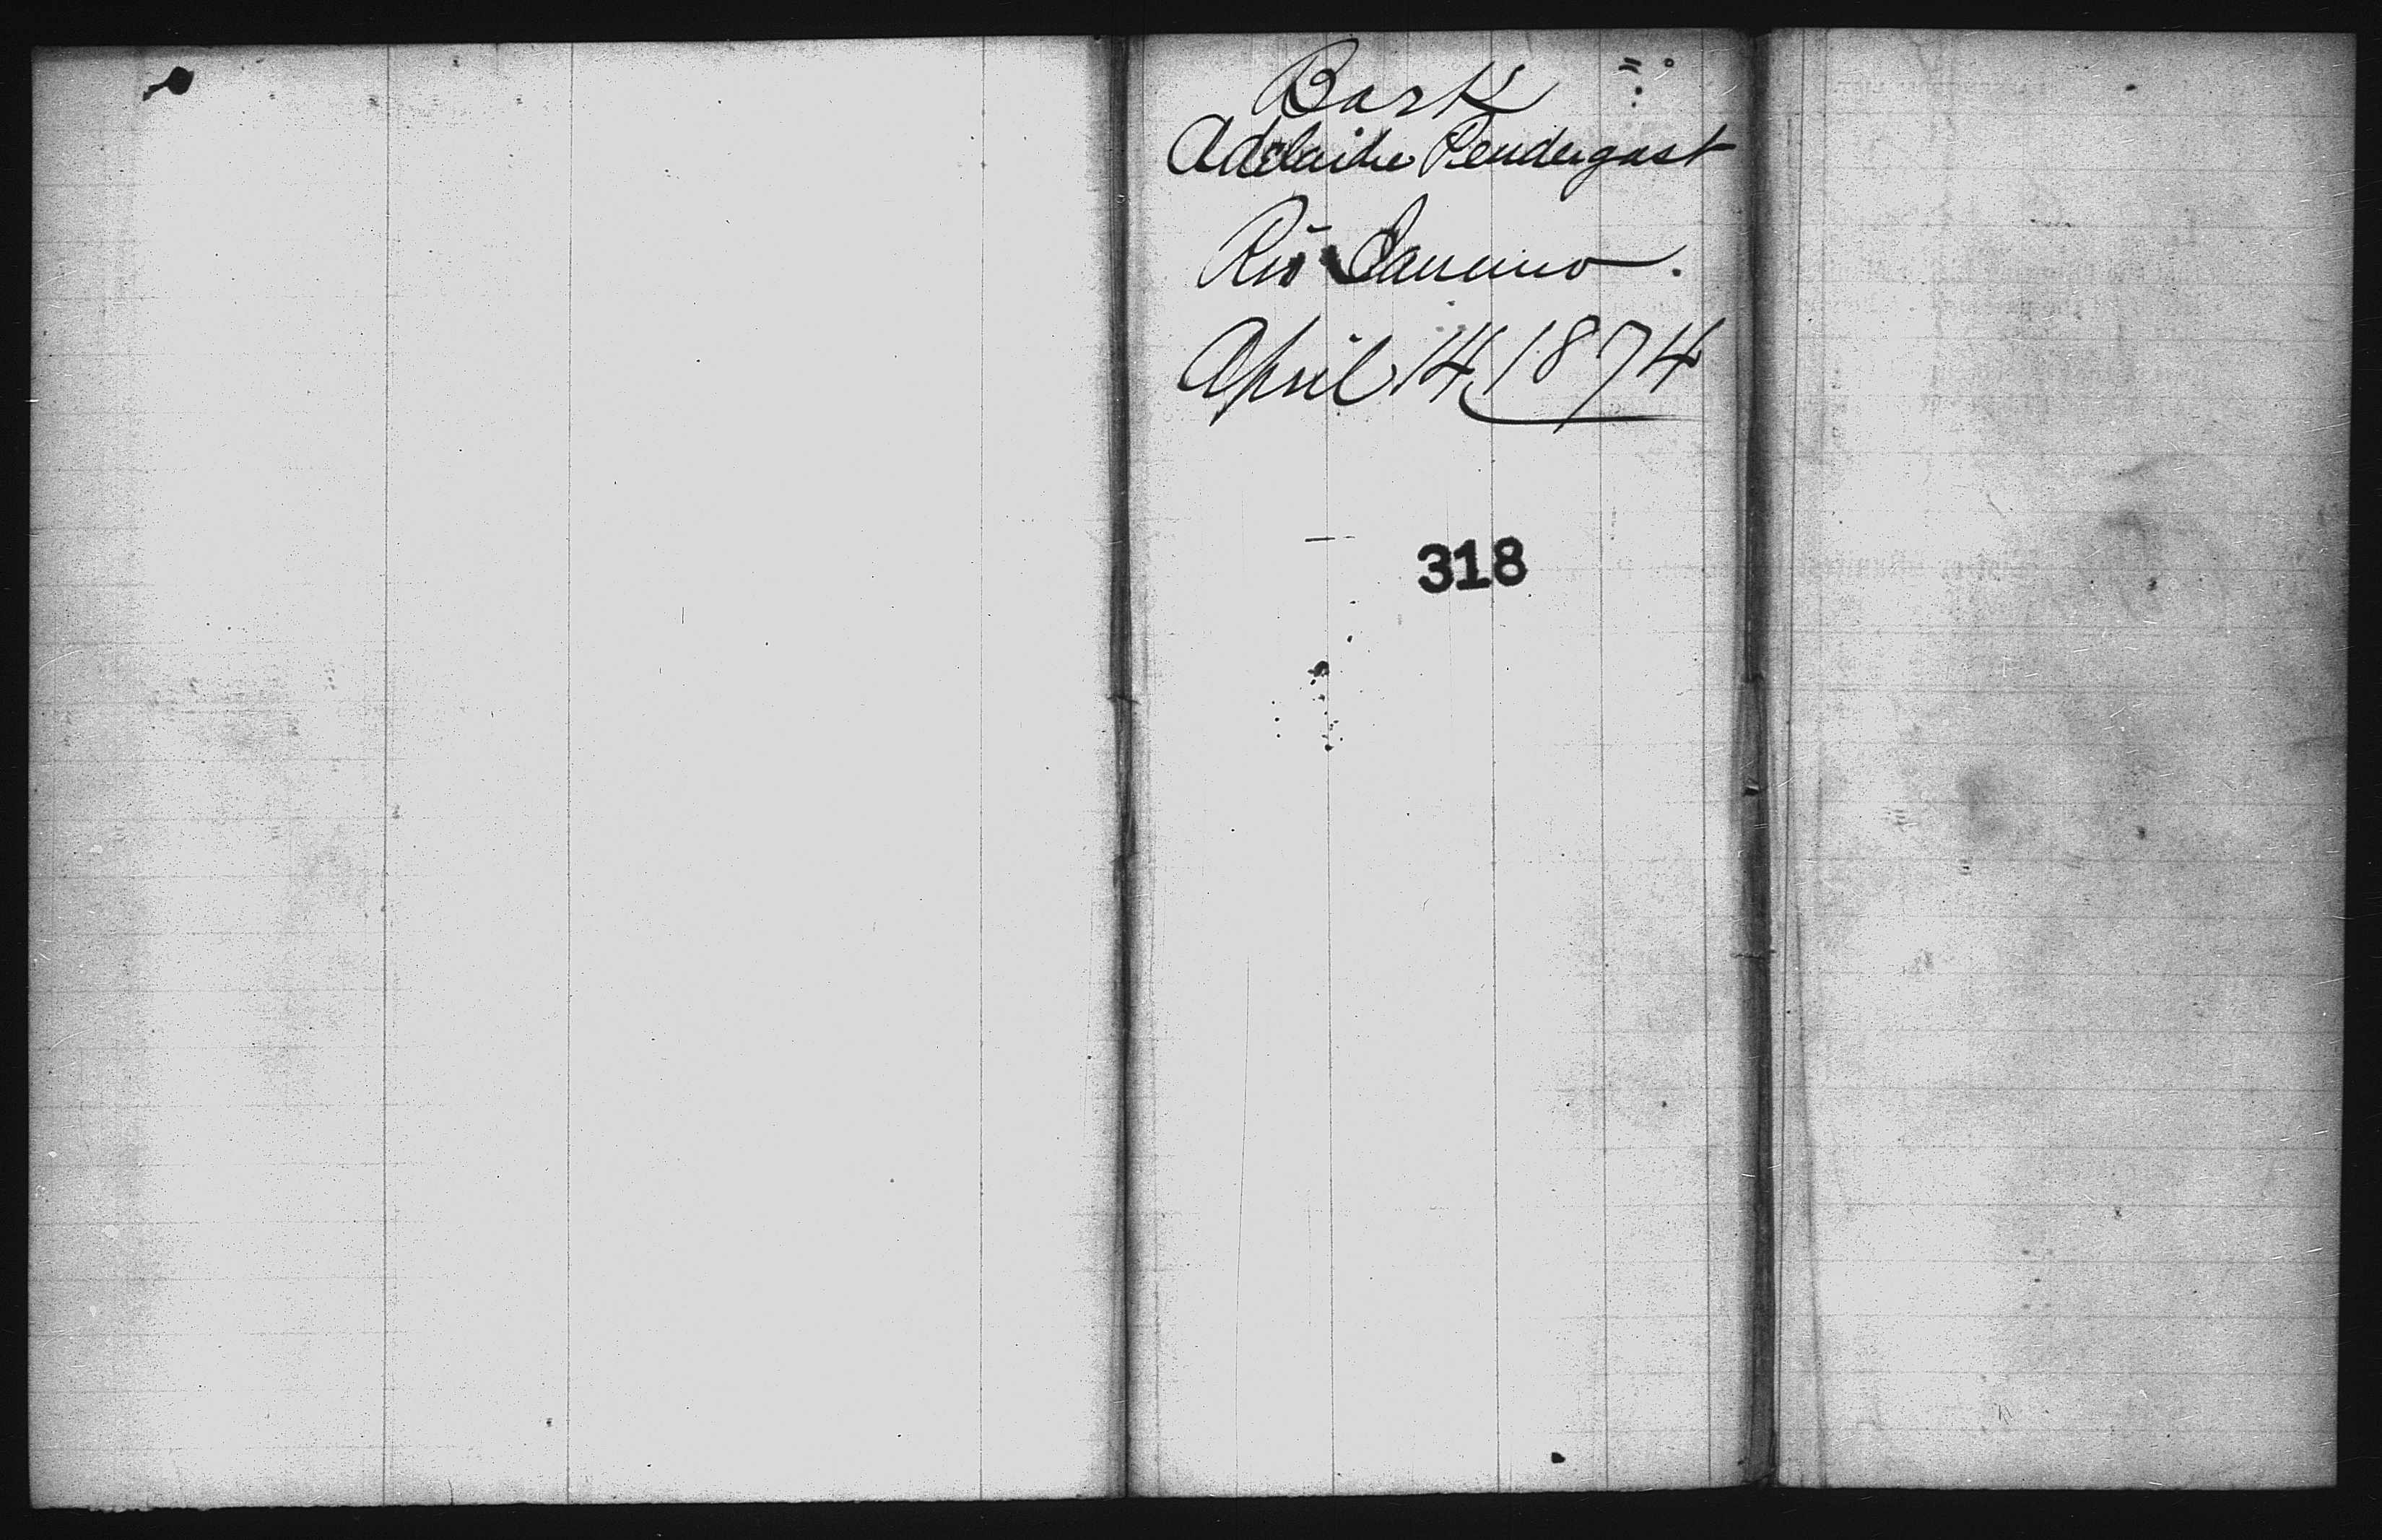 Bark
Adelaide Pendergast
Rio Janeiro.
April 14, 1874
318